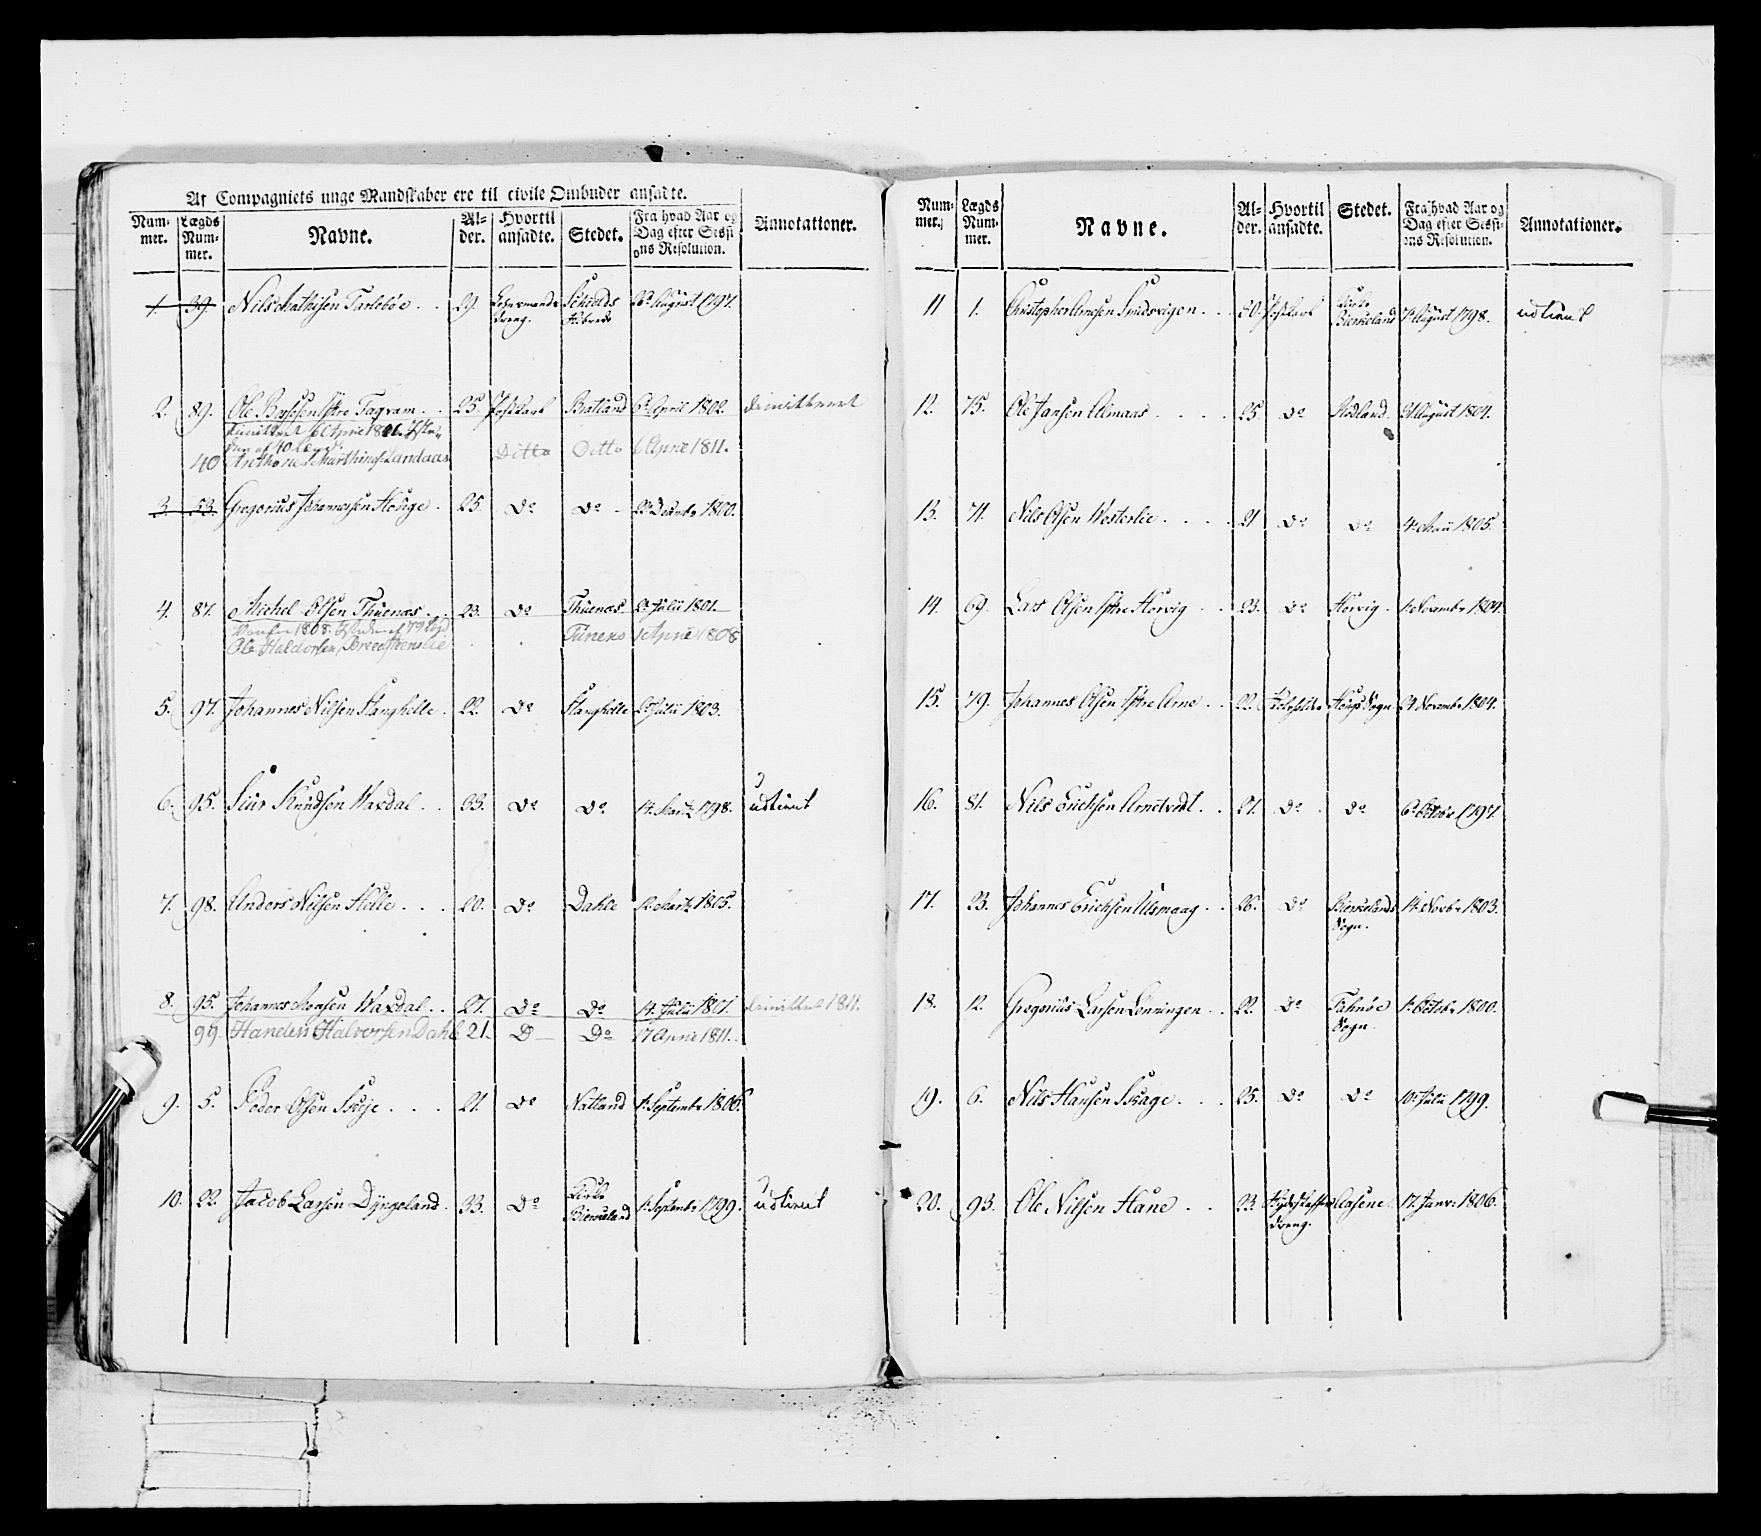 Af Compagniets unge Mandskaber ere til civile Ombuder ansadte.
Num-mer. Lægds Num-mer. Navne. Al-der. Hvortil ansadte. Stedet. Fra hvad Aar og Dag efter Sessi-ons Resolution. Annotationer.
1. 39. Nils Mathisen Tarlebøe . . 29. Lehnsmands dreng. Schiolds Schibrede August 1797.
2. 89. Ole Børgesen Istre Tagvam . . 25. Postkarl Batland 6te April 1802. demitteret
demitteret 6 April 1811.
40 Anthone Marthins Landaas Ditto Ditto 6 April 1811.
3. 53. Gregorius Johannesen Houge . 25. do do 22 Decembr 1800.
4. 87. Michel Olsen Thuenæs . . 23. do Thuenæs 2 Julii 1801.
Ole Haldorsen Breedstenslie Tuneno 1 April 1808
5. 97. Johannes Nilsen Stanghelle . 22. do Stanghelle Julii 1803.
6. 95. Siur Knudsen Waxdal . . 33. do do 14. Martz 1798. udtient
7. 98. Anders Nilsen Helle . . . 20. do Dahle 12 Martz 1805.
8. 95. Johannes Monsen Waxdal . . 27. do do 14. Julii 1801. demitteret 1811.
99. Hanelen Halvorsen Dahle 21. D— Do 17 April 1811.
9. 5. Peder Olsen Skeje . . . 21. do Natland 1. Septembr 1806.
10. 22. Jacob Larsen Dyngeland . 33. do Birkeland 1. Septembr 1799. udtient
Num-mer. Lægds Num-mer. Navne. Al-der. Hvortil ansadte. Stedet. Fra hvad Aar og Dag efter Sessi-ons Resolution. Annotationer.
11 1. Christopher Arnesen Smidsvigen . . 30. Postkarl Birkeland August 1798. udtient
12. 75. Ole Jansen Almaas . . . . 25 do Rødland. 21 August 1804.
13. 71. Nils Olsen Westerlie . . . . 21 do do 4. Maii 1805.
14. 69. Lars Olsen Istre Hervig . . 23. do Hervig. 1. Novembr 1804.
15. 79. Johannes Olsen Istre Arne . . 22. Hougs Sogn 24 Novembr 1804.
16. 81. Nils Erichsen Arnetvedt . . 27. do . do 6 Octobr 1797.
17. 23. Johannes Erichsen Alsmaag . . 26. do Birkelands Sogn. 14. Novbr 1803.
18. 12. Gregorius Larsen Lønningen . . 22. do Fahnøe Sogn. 1. Octobr 1800.
19. 6. Nils Hansen Skage . . . 25. do do 10. Julii 1799.
20. 93. Ole Nilsen Hane . . 23. Skydsskaffer dreng. Aasene. 17. Janr: 1806.